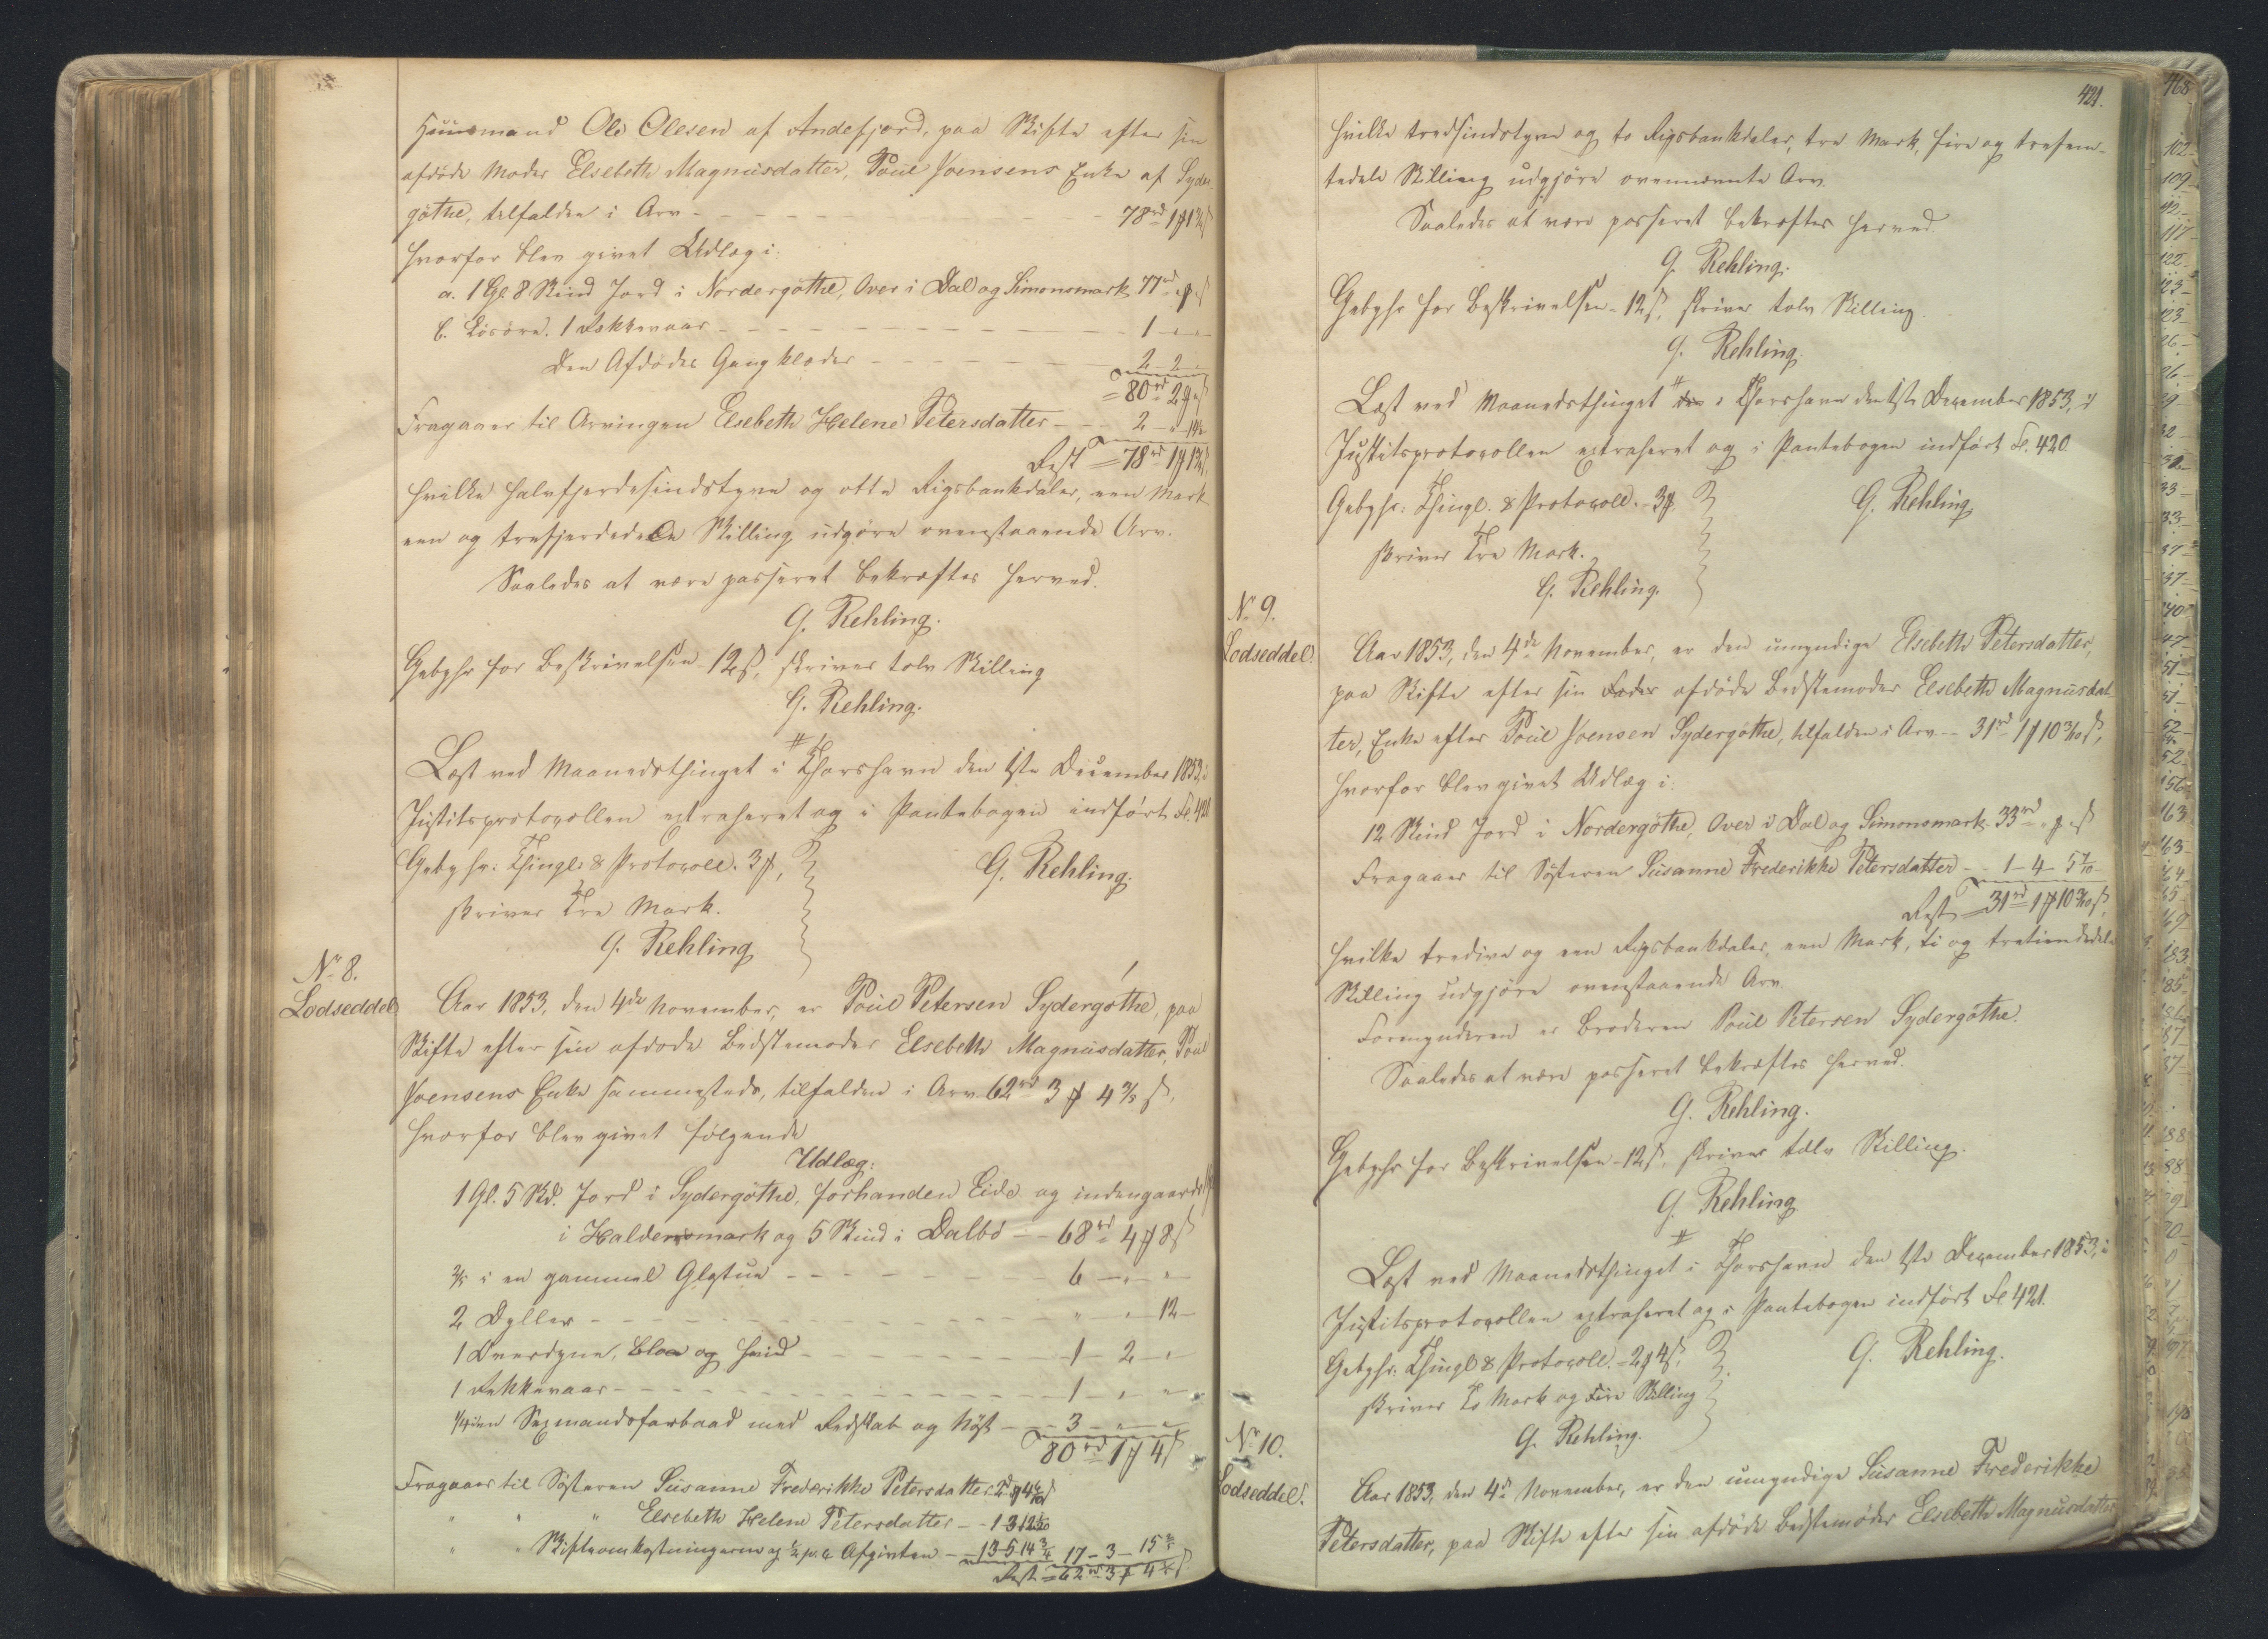 Huusmand Ole Olesen af Andefjord, paa Skifte efter sin
afdöde Moder Elsebeth Magnusdatter, Poul Joensens Enke af Syder-
göthe, tilfalden i Arv - - - 78rd 1 ℔ 1¾ ß
hvorfor blev givet Udlæg i:
a. 1 Gl. 8 Skind Jord i Nordergöthe, Over i Dal og Simonsmark 77rd " ℔ " ß
b. Lösöre. 1 Rekkevaar - - - 1 - " - "
Den Afdödes Gangklæder - - - 2 - 2 - "
= 80rd 2 ℔ " ß
Fragaaer til Arvingen Elsebeth Helene Petersdatter - - 2 - " - 14¼
Rest = 78rd 1 ℔ 1¾ ß,
hvilke halvfjerdesindstyve og otte Rigsbankdaler, een Mark
een og trefjerdedele Skilling udgöre ovenstaaende Arv.
Saaledes at være passeret bekræftes herved.
G. Rehling.
Gebyhr for Beskrivelsen 12 ß, skriver tolv Skilling
G. Rehling.
Læst ved Maanedsthinget i Thorshavn den 1ste December 1853, i
Justitsprotocollen extraheret og i Pantebogen indfört Fol. 420
Gebyhr: Thingl. & Protocoll. 3 ℔,
skriver Tre Mark.
G. Rehling.
G. Rehling
No 8.
Lodseddel.
Aar 1853, den 4de November, er Poul Petersen Sydergöthe, paa
Skifte efter sin afdöde Bedstemoder Elsebeth Magnusdatter, Poul
Joensens Enke sammesteds, tilfalden i Arv 62rd 3 ℔ 4 3/5 ß,
hvorfor blev givet fölgende
Udlæg:
1 Gl. 5 Skd. Jord i Sydergöthe, forhanden Eide og indengaards
i Haldensmark og 5 Skind i Dalbö - - 68rd 4 ℔ 8 ß
2/5 i en gammel Glastue - - - 6 - " - "
2 Dyller - - - " - " - 12 -
1 Overdyne, blaa og hvid - - - 1 - 2 - "
1 Rekkevaar - - - 1 - " - "
1/4 i en Sexmandsfarbaad med Redskab og Nöst - - 3 - " - "
80rd 1 ℔ 4 ß
Fragaaer til Sösteren Susanne Frederikke Petersdatter
" " Elsebeth Helene Petersdatter - - 1 3
" " Skifteomkostningerne og ½ p. C. Afgivten - - 13-5-14¾ 17 - 3 - 15
Rest = 62rd 3 ℔ 4 ß
421.
hvilke tredsindstyve og to Rigsbankdaler, tre Mark, fire og trefem-
tedele Skilling udgjöre ovennævnte Arv.
Saaledes at være passeret bekræftes herved.
G. Rehling.
Gebyhr for Beskrivelsen - 12 ß, skriver tolv Skilling.
G. Rehling.
Læst ved Maanedsthinget i Thorshavn den 1ste December 1853, i
Justitsprotocollen extraheret og i Pantebogen indfört Fol. 420.
Gebyhr: Thingl. & Protocoll. - 3 ℔.
skriver Tre Mark.
G. Rehling.
G. Rehling
No 9.
Lodseddel.
Aar 1853, den 4de November, er den umyndige Elsebeth Petersdatter,
paa Skifte efter sin Fader afdöde Bedstemoder Elsebeth Magnusdat-
ter, Enke efter Poul Joensen Sydergöthe, tilfalden i Arv - 31rd 1 ℔ 10 3/10 ß,
hvorfor blev givet Udlæg i:
12 Skind Jord i Nordergöthe, Over i Dal og Simonsmark 33rd " ℔ " ß
Fragaaer til Sösteren Susanne Frederikke Petersdatter - - 1 - 4 - 5 7/10
Rest = 31rd 1 ℔ 10 3/10 ß,
hvilke tredive og een Rigsbankdaler, een Mark, ti og tretiendedele
Skilling udgjöre ovenstaaende Arv.
Formynderen er Broderen Poul Petersen Sydergöthe.
Saaledes at være passeret bekræftes herved.
G. Rehling.
Gebyhr for Beskrivelsen - 12 ß, skriver tolv Skilling.
G. Rehling
Læst ved Maanedsthinget i Thorshavn den 1ste December 1853, i
Justitsprotocollen extraheret og i Pantebogen indfört Fol. 421.
Gebyhr. Thingl. & Protocoll. - 2 ℔ 4 ß,
skriver To Mark og Fire Skilling
G. Rehling.
G. Rehling.
No 10.
Lodseddel.
Aar 1853, den 4de November, er den umyndige Susanne Frederikke
Petersdatter, paa Skifte efter sin afdöde Bedstemoder Elsebeth Magnusdatter